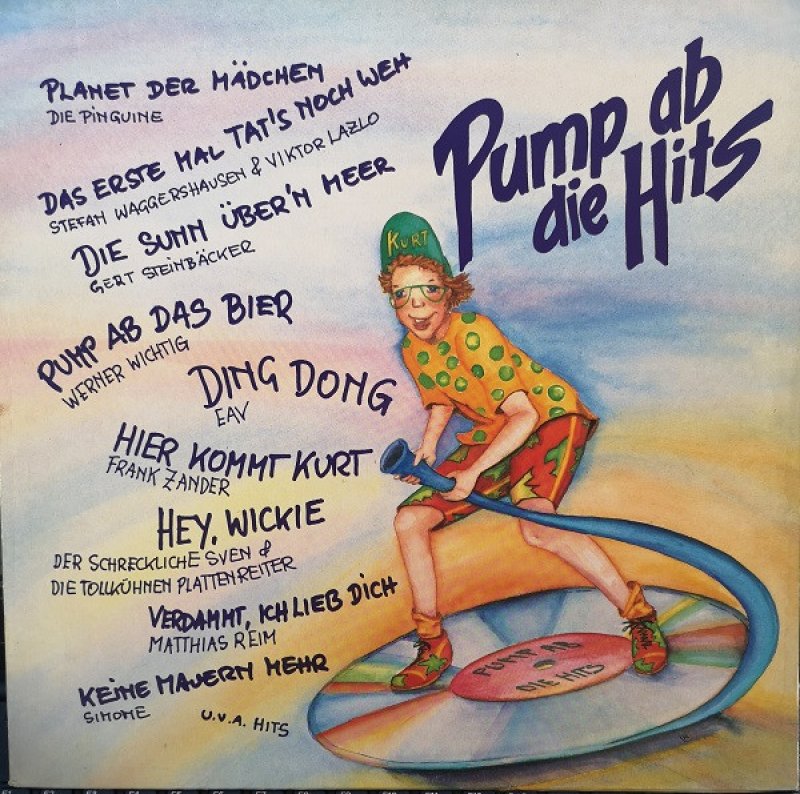 Pump ab
die Hits
PLANET DER MÄDCHEN
DIE PINGUINE
DAS ERSTE MAL TAT'S NOCH WEH
STEFAN WAGGERSHAUSEN & VIKTOR LAZLO
DIE SUNN ÜBER'N MEER
GERT STEINBÄCKER
PUMP AB DAS BIER
WERNER WICHTIG
DING DONG
EAV
HIER KOMMT KURT
FRANK ZANDER
HEY, WICKIE
DER SCHRECKLICHE SVEN &
DIE TOLLKÜHNEN PLATTENREITER
VERDAMMT, ICH LIEB DICH
MATTHIAS REIM
KEINE MAUERN MEHR
SIMONE
U.V.A. HITS
KURT
PUMP AB
DIE HITS